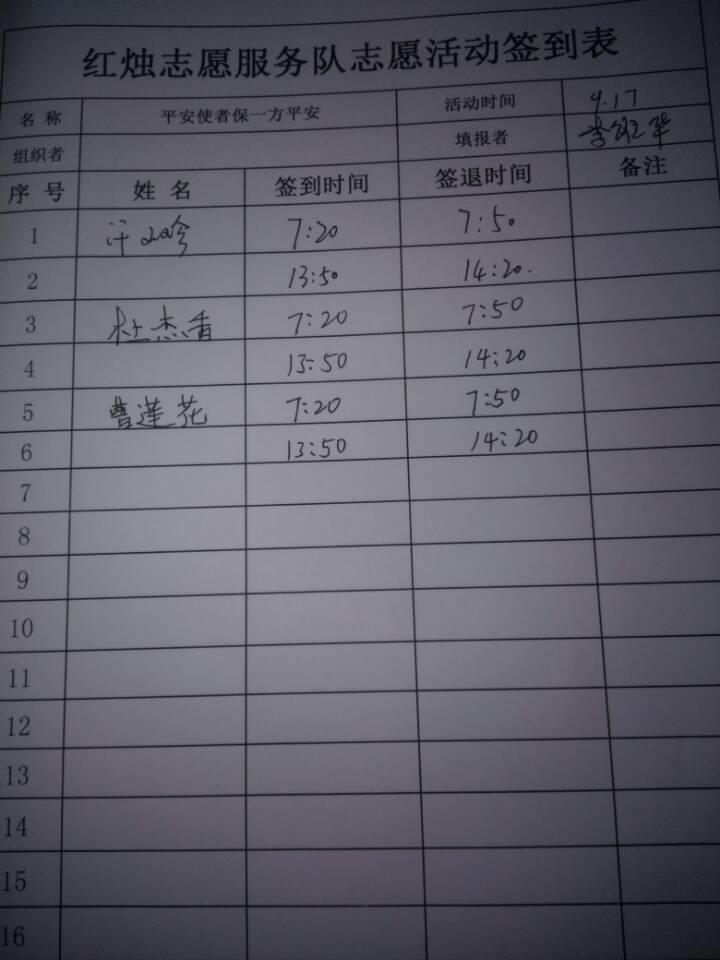 红烛志愿服务队志愿活动签到表
名 称 平安使者保一方平安 活动时间 9.17
组织者 填报者
序 号 姓 名 签到时间 签退时间 备注
1 7:20 7:50
2 13:50 14:20.
3 杜杰香 7:20 7:50
4 13:50 14:20
5 曹莲花 7:20 7:50
6 13:50 14:20
7
8
9
10
11
12
13
14
15
16